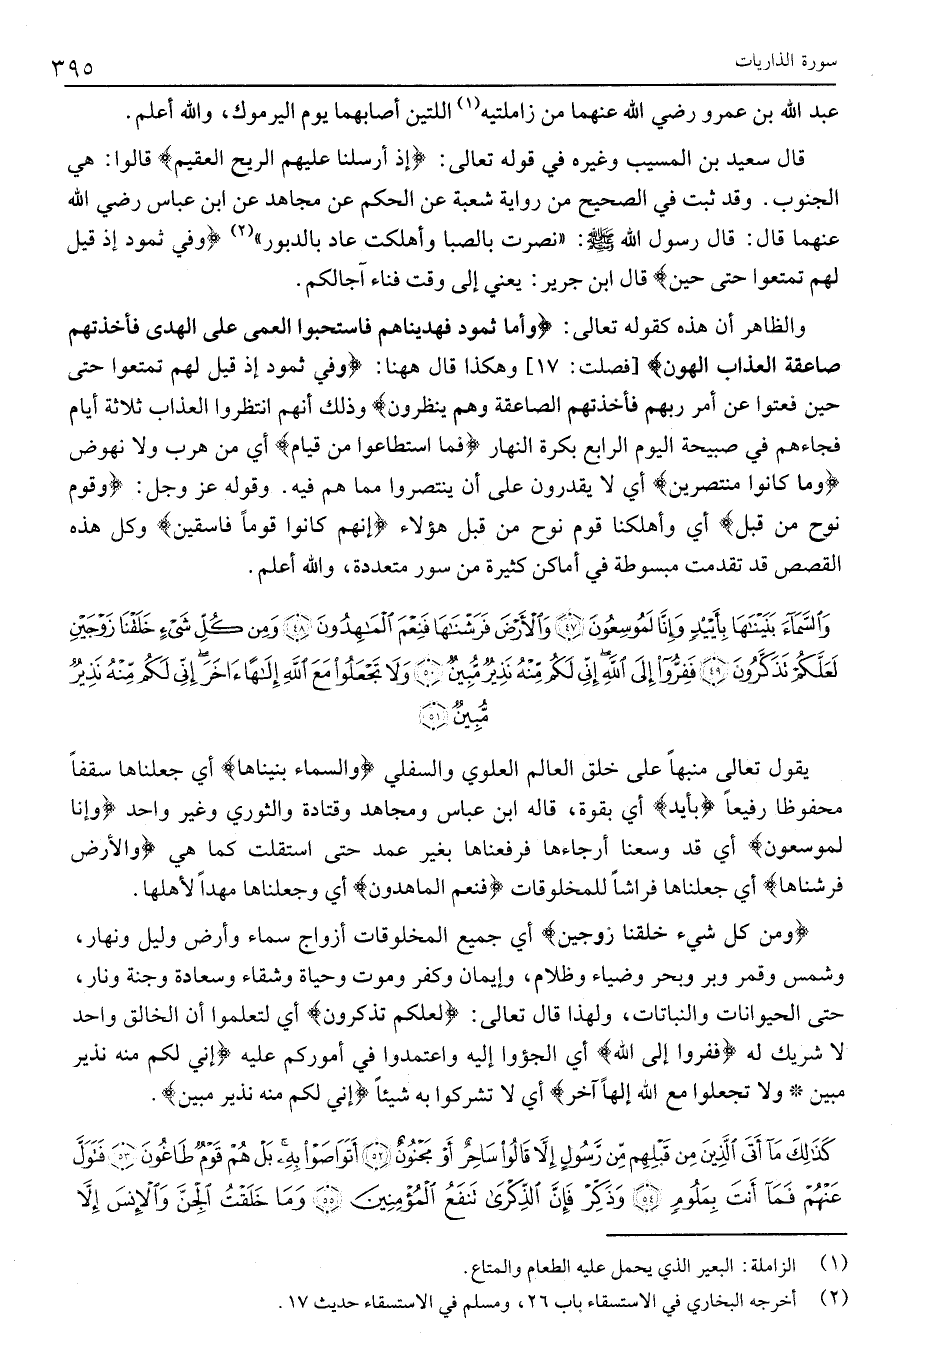 سورة الذاريات ٣٩٥
عبد الله بن عمرو رضي الله عنهما من زاملتيه(١) اللتين أصابهما يوم اليرموك، والله أعلم.
قال سعيد بن المسيب وغيره في قوله تعالى: ﴿إذ أرسلنا عليهم الريح العقيم﴾ قالوا: هي
الجنوب. وقد ثبت في الصحيح من رواية شعبة عن الحكم عن مجاهد عن ابن عباس رضي الله
عنهما قال: قال رسول الله ﷺ: «نصرت بالصبا وأهلكت عاد بالدبور»(٢) ﴿وفي ثمود إذ قيل
لهم تمتعوا حتى حين﴾ قال ابن جرير: يعني إلى وقت فناء آجالكم.
والظاهر أن هذه كقوله تعالى: ﴿وأما ثمود فهديناهم فاستحبوا العمى على الهدى فأخذتهم
صاعقة العذاب الهون﴾ [فصلت: ١٧] وهكذا قال ههنا: ﴿وفي ثمود إذ قيل لهم تمتعوا حتى
حين فعتوا عن أمر ربهم فأخذتهم الصاعقة وهم ينظرون﴾ وذلك أنهم انتظروا العذاب ثلاثة أيام
فجاءهم في صبيحة اليوم الرابع بكرة النهار ﴿فما استطاعوا من قيام﴾ أي من هرب ولا نهوض
﴿وما كانوا منتصرين﴾ أي لا يقدرون على أن ينتصروا مما هم فيه. وقوله عز وجل: ﴿وقوم
نوح من قبل﴾ أي وأهلكنا قوم نوح من قبل هؤلاء ﴿إنهم كانوا قوماً فاسقين﴾ وكل هذه
القصص قد تقدمت مبسوطة في أماكن كثيرة من سور متعددة، والله أعلم.
وَٱلسَّمَآءَ بَنَيْنَٰهَا بِأَيْي۟دٍ وَإِنَّا لَمُوسِعُونَ ﴿٤٧﴾ وَٱلْأَرْضَ فَرَشْنَٰهَا فَنِعْمَ ٱلْمَٰهِدُونَ ﴿٤٨﴾ وَمِن كُلِّ شَىْءٍ خَلَقْنَا زَوْجَيْنِ
لَعَلَّكُمْ تَذَكَّرُونَ ﴿٤٩﴾ فَفِرُّوٓا۟ إِلَى ٱللَّهِ ۖ إِنِّى لَكُم مِّنْهُ نَذِيرٌ مُّبِينٌ ﴿٥٠﴾ وَلَا تَجْعَلُوا۟ مَعَ ٱللَّهِ إِلَٰهًا ءَاخَرَ ۖ إِنِّى لَكُم مِّنْهُ نَذِيرٌ
مُّبِينٌ ﴿٥١﴾
يقول تعالى منبهاً على خلق العالم العلوي والسفلي ﴿والسماء بنيناها﴾ أي جعلناها سقفاً
محفوظا رفيعاً ﴿بأيد﴾ أي بقوة، قاله ابن عباس ومجاهد وقتادة والثوري وغير واحد ﴿وإنا
لموسعون﴾ أي قد وسعنا أرجاءها فرفعناها بغير عمد حتى استقلت كما هي ﴿والأرض
فرشناها﴾ أي جعلناها فراشاً للمخلوقات ﴿فنعم الماهدون﴾ أي وجعلناها مهداً لأهلها.
﴿ومن كل شيء خلقنا زوجين﴾ أي جميع المخلوقات أزواج سماء وأرض وليل ونهار،
وشمس وقمر وبر وبحر وضياء وظلام، وإيمان وكفر وموت وحياة وشقاء وسعادة وجنة ونار،
حتى الحيوانات والنباتات، ولهذا قال تعالى: ﴿لعلكم تذكرون﴾ أي لتعلموا أن الخالق واحد
لا شريك له ﴿ففروا إلى الله﴾ أي الجؤوا إليه واعتمدوا في أموركم عليه ﴿إني لكم منه نذير
مبين * ولا تجعلوا مع الله إلهاً آخر﴾ أي لا تشركوا به شيئاً ﴿إني لكم منه نذير مبين﴾.
كَذَٰلِكَ مَآ أَتَى ٱلَّذِينَ مِن قَبْلِهِم مِّن رَّسُولٍ إِلَّا قَالُوا۟ سَاحِرٌ أَوْ مَجْنُونٌ ﴿٥٢﴾ أَتَوَاصَوْا۟ بِهِۦ ۚ بَلْ هُمْ قَوْمٌ طَاغُونَ ﴿٥٣﴾ فَتَوَلَّ
عَنْهُمْ فَمَآ أَنتَ بِمَلُومٍ ﴿٥٤﴾ وَذَكِّرْ فَإِنَّ ٱلذِّكْرَىٰ تَنفَعُ ٱلْمُؤْمِنِينَ ﴿٥٥﴾ وَمَا خَلَقْتُ ٱلْجِنَّ وَٱلْإِنسَ إِلَّا
(١) الزاملة: البعير الذي يحمل عليه الطعام والمتاع.
(٢) أخرجه البخاري في الاستسقاء باب ٢٦، ومسلم في الاستسقاء حديث ١٧.